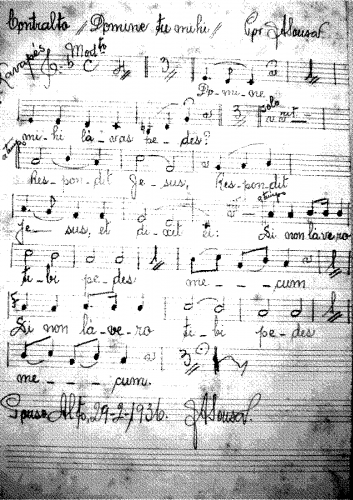 Contralto // Domine tu mihi // Por JASousa
Lavapés Modto
C 3
Do-mi-ne
3 solo
mi-hi là-vas pe-des?
a tempo
Res-pon-dit Je-sus, Res-pon-dit
a tempo
Je-sus, et di-xit ei: Si non làvero
ti-bi pe-des me-cum
Si non là-ve-ro ti-bi pe-des
me-cum.
3
Pouso Alto, 29-2-1936. JASousa